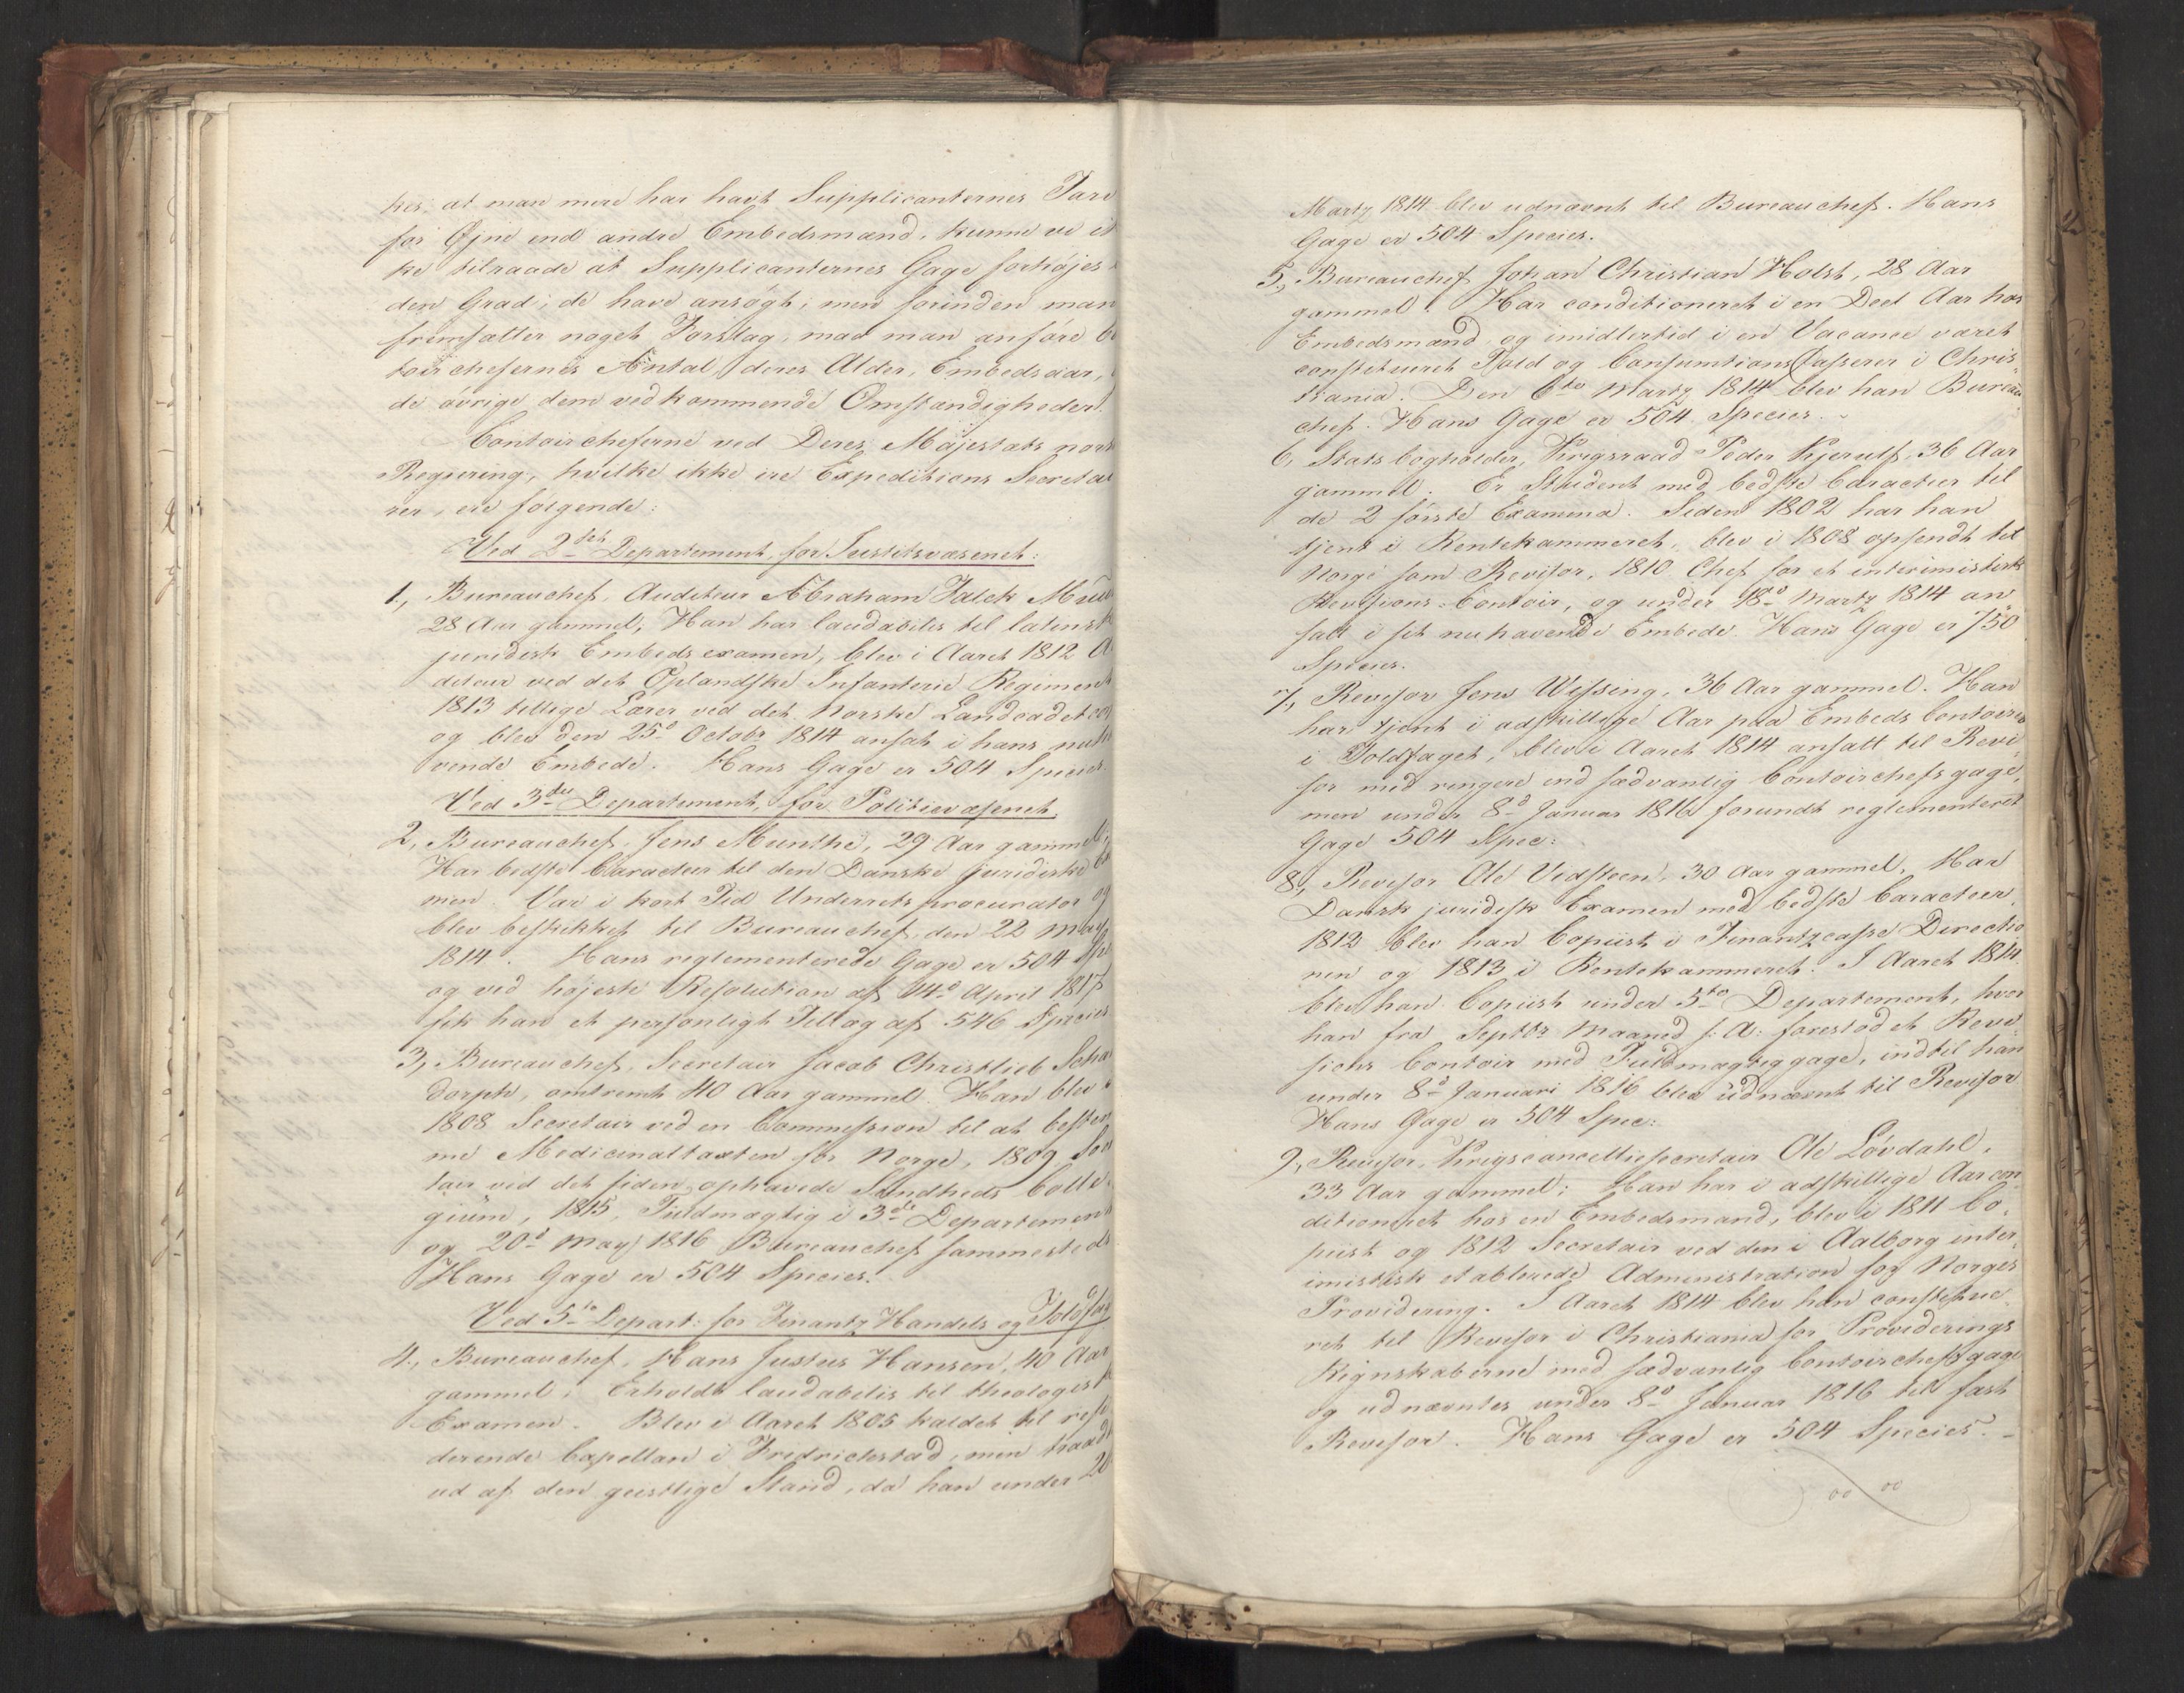 kes, at man mere har havt Supplicanternes Tarv
for Øjne end andre Embedsmænd, kunne vi ik
ke tilraade at Supplicanternes Gage forhøjes i
den Grad, de have ansøgt, men forinden man
fremsætter noget Forslag, maa man anføre
toirchefernes Antal, deres Alder, Embedsaar,
de øvrige dem vedkommende Omstændigheder.
Contoircheferne ved Deres Majestæts norsk
Regjering, hvilke ikke ere Expeditions Secretai
rer, ere følgende:
Ved 2det Departement for Justitsvæsenet:
1., Bureauchef, Auditeur Abraham Falck
28 Aar gammel; Han har laudabilis til latinsk
juridisk Embedsexamen, blev i Aaret 1812 A
diteur ved det Oplandske Infanterie Regiment
1813 tillige Lærer ved det Norske Landcadetcor
og blev den 25de Octobr 1814 ansat i hans nuh
vende Embede. Hans Gage er 504 Species.
Ved 3die Departement, for Politievæsenet,
2, Bureauchef, Jens Munthe, 29 Aar gammel,
Har bedste Caracteer til den Danske juridiske Ex
men. Var i kort Tid Underretsprocurator og
blev beskikket til Bureauchef, den 22 May
1814. Hans reglementerede Gage er 504 Spe
og ved højeste Resolution af 14de April 1817
fik han et personligt Tillæg af 546 Species
3, Bureauchef, Secretair Jacob Christlieb Scha
dorph, omtrent 40 Aar gammel. Han blev i
1808 Secretair ved en Commission til at bestem
me Medicinaltaxten for Norge, 1809 Sec
tair ved det siden ophævede Sundheds Colle-
gium, 1815, Fuldmægtig i 3die Departement
og 20de May 1816 Bureauchef sammesteds
Hans Gage er 504 Species.
Ved 5te Depart: for Finantz Handels og Toldfag
4., Bureauchef, Hans Justus Hansen, 40 Aar
gammel; Erholdt laudabilis til theologisk
Examen. Blev i Aaret 1805 kaldet til resi
derende Capellan i Fredrichstad, men traadt
ud af den geistlige Stand, da han under 20
Martz 1814 blev udnævnt til Bureauchef. Hans
Gage er 504 Species.
5., Bureauchef Johan Christian Holst, 28 Aar
gammel. Har conditioneret i en Deel Aar hos
Embedsmænd og imidlertid i en Vacance været
constitueret Told og Consumtions Casserer i Chris-
tiania. Den 6te Martz 1814 blev han Bureau
chef. Hans Gage er 504 Species.
6, Stats bogholder, Krigsraad Peder Kjerulf, 36 Aar
gammel. Er Student med bedste Caracteer til
de 2 første Examina. Siden 1802 har han
tjent i Rentekammeret, blev i 1808 opsendt til
Norge som Revisor, 1810 Chef for et interimistisk
Revisions-Contoir, og under 18de Martz 1814 an
satt i sit nuhavende Embede. Hans Gage er 750
Species.
7, Revisor Jens Wissing, 36 Aar gammel. Han
har tjent i adskillige Aar paa Embeds Contoirer
i Toldfaget, blev i Aaret 1814 ansatt til Revi-
sor med ringere end sædvanlig Contoirchefsgage,
men under 8de Januar 1816 forundt reglementeret
Gage 504 Spec:
8, Revisor Ole Vidsteen, 30 Aar gammel, Har
Dansk juridisk Examen med bedste Caracteer,
1812 blev han Copiist i Finantzcasse Directio
nen og 1813 i Rentekammeret. I Aaret 1814
blev han Copiist under 5te Departement, hvor
han fra Septbr Maaned s: A: forestod et Revi-
sions Contoir med Fuldmægtiggage, indtil han
under 8de Januari 1816 blev udnævnt til Revisor
Hans Gage er 504 Spec:
9, Revisor, Krigscancelliesecretair Ole Løvdahl,
33 Aar gammel; Han har i adskillige Aar con
ditioneret hos en Embedsmand, blev i 1811 Co-
piist og 1812 Secretair ved den i Aalborg inter
imistisk etablerede Administration for Norges
Providering. I Aaret 1814 blev han constitue-
ret til Revisor i Christiania for Providerings
Regnskaberne med sædvanlig Contoirchefsgage
og udnævntes under 8de Januar 1816 til fast
Revisor. Hans Gage er 504 Species.